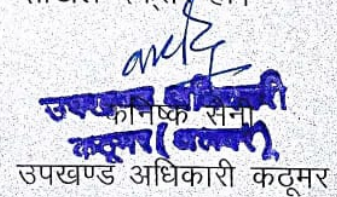 उपखण्ड अधिकारी
कनिष्क सैनी
कठूमर (अलवर)
उपखण्ड अधिकारी कठूमर